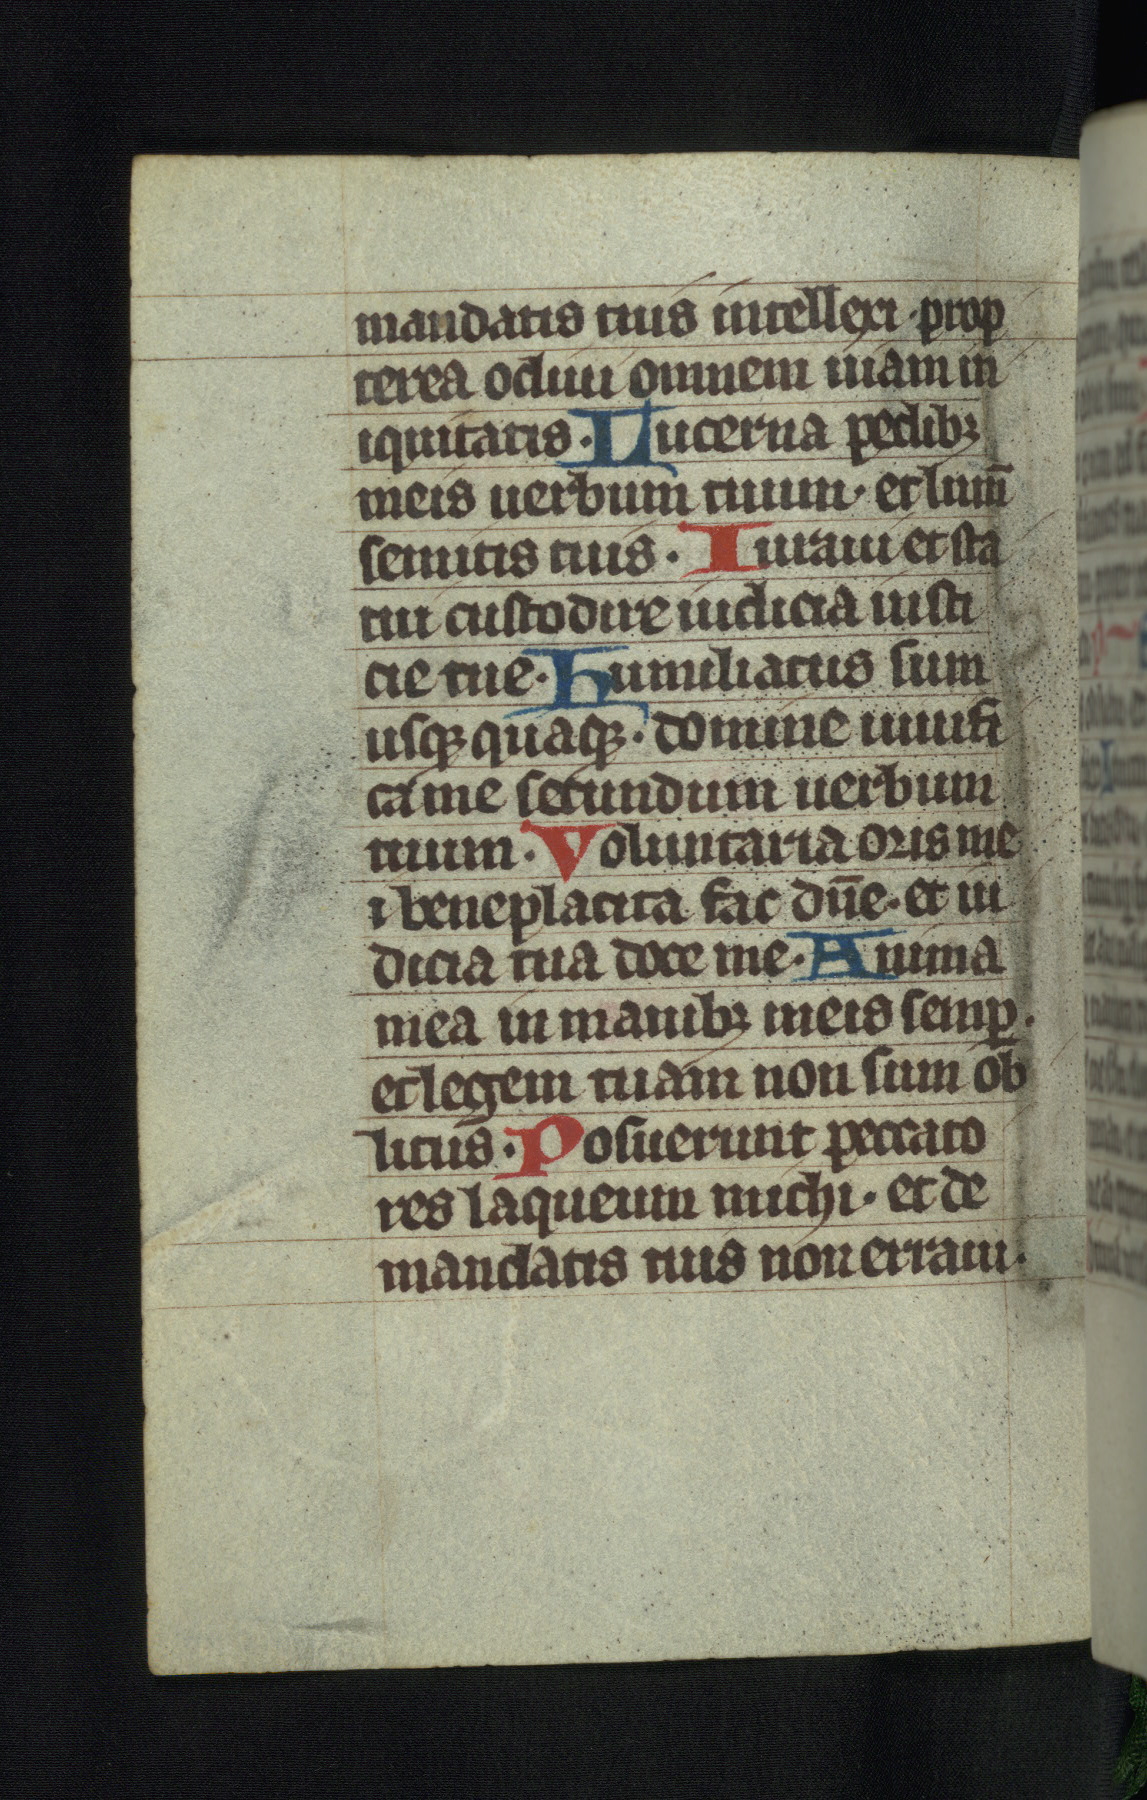 mandatis tuis intellexi · prop
terea odiui omnem uiam in
iquitatis · Lucerna pedibꝫ
meis uerbum tuum · et lum̄
semitis tuis · Iuraui et sta
tui custodire iudicia iusti
cie tue · Humiliatus sum
usqꝫ quaqꝫ · domine uiuifi
ca me secundum uerbum
tuum · Voluntaria oris me
i beneplacita fac dn̄e · et iu
dicia tua doce me · Anima
mea in manibꝫ meis semꝑ ·
et legem tuam non sum ob
litus · Posuerunt peccato
res laqueum michi · et de
mandatis tuis non erraui ·